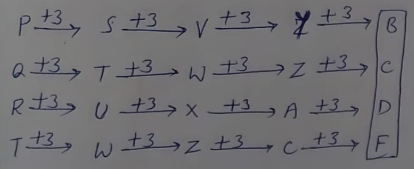 P +3 → S +3 → V +3 → Y +3 → B
Q +3 → T +3 → W +3 → Z +3 → C
R +3 → U +3 → X +3 → A +3 → D
T +3 → W +3 → Z +3 → C +3 → F